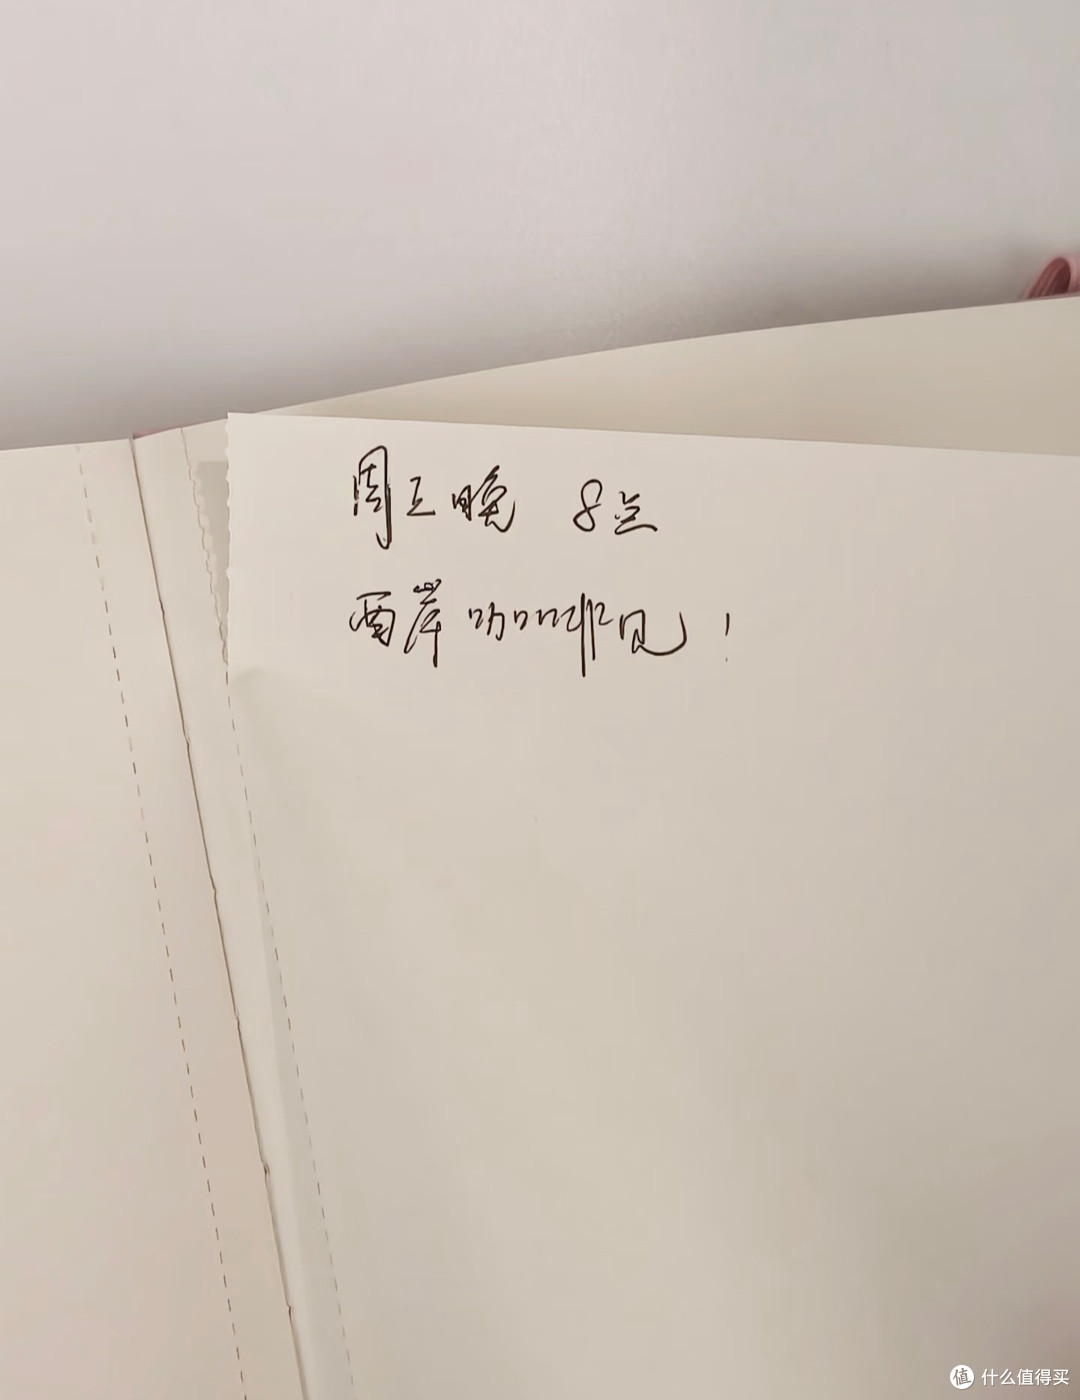 周三晚 8点
西岸咖啡见!
值 什么值得买